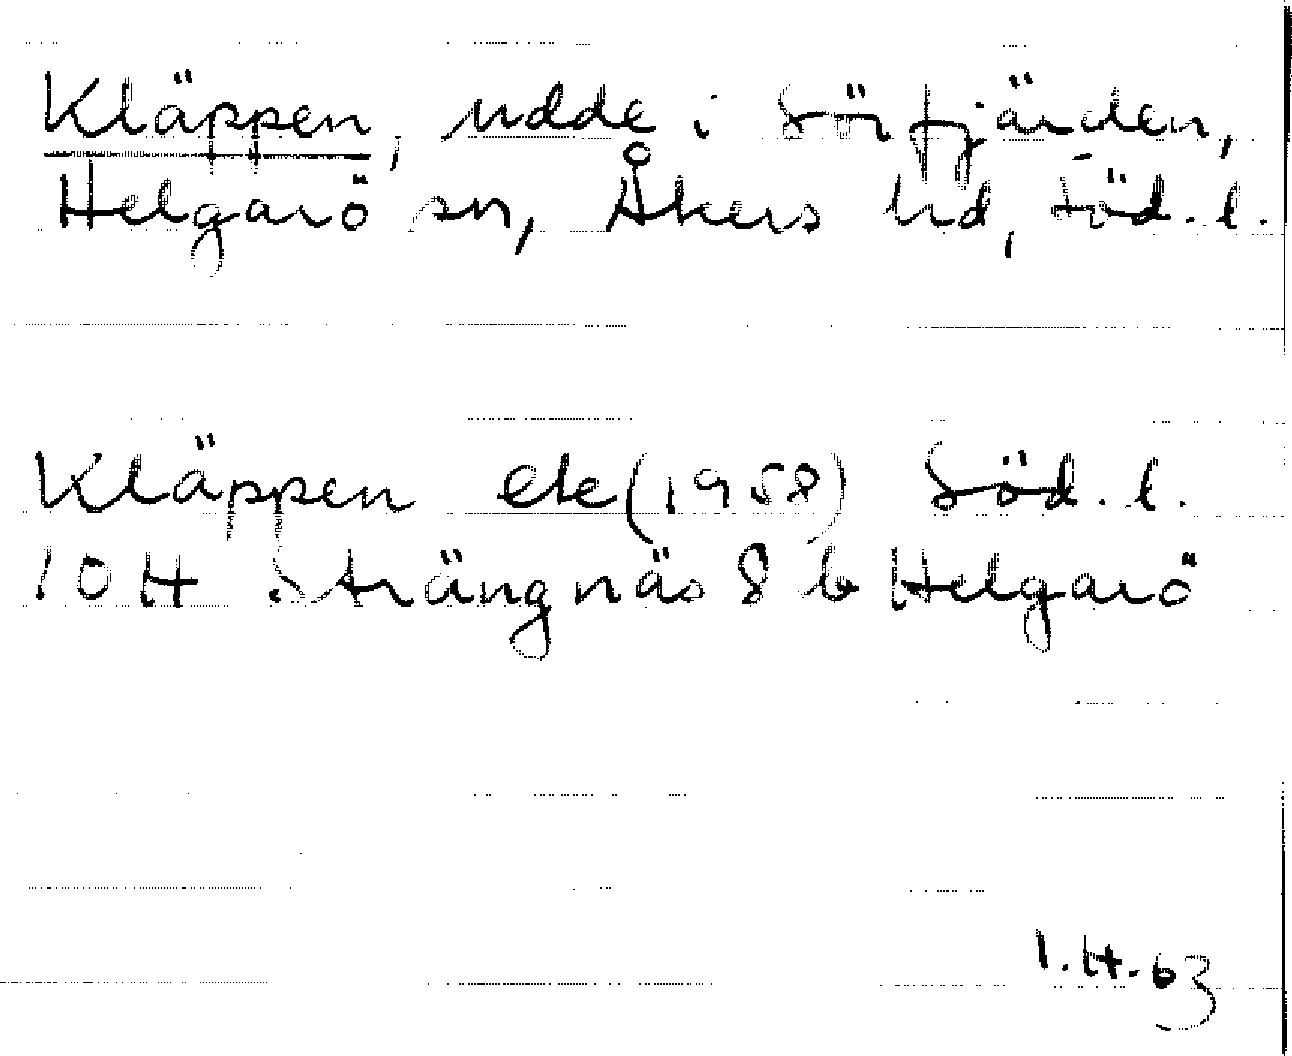 Kläppen, udde i Sörfjärden,
Helgarö sn, Åkers hd, Söd. l.
Kläppen ek (1958) Söd. l.
10 H Strängnäs 8 b Helgarö
1.H.63